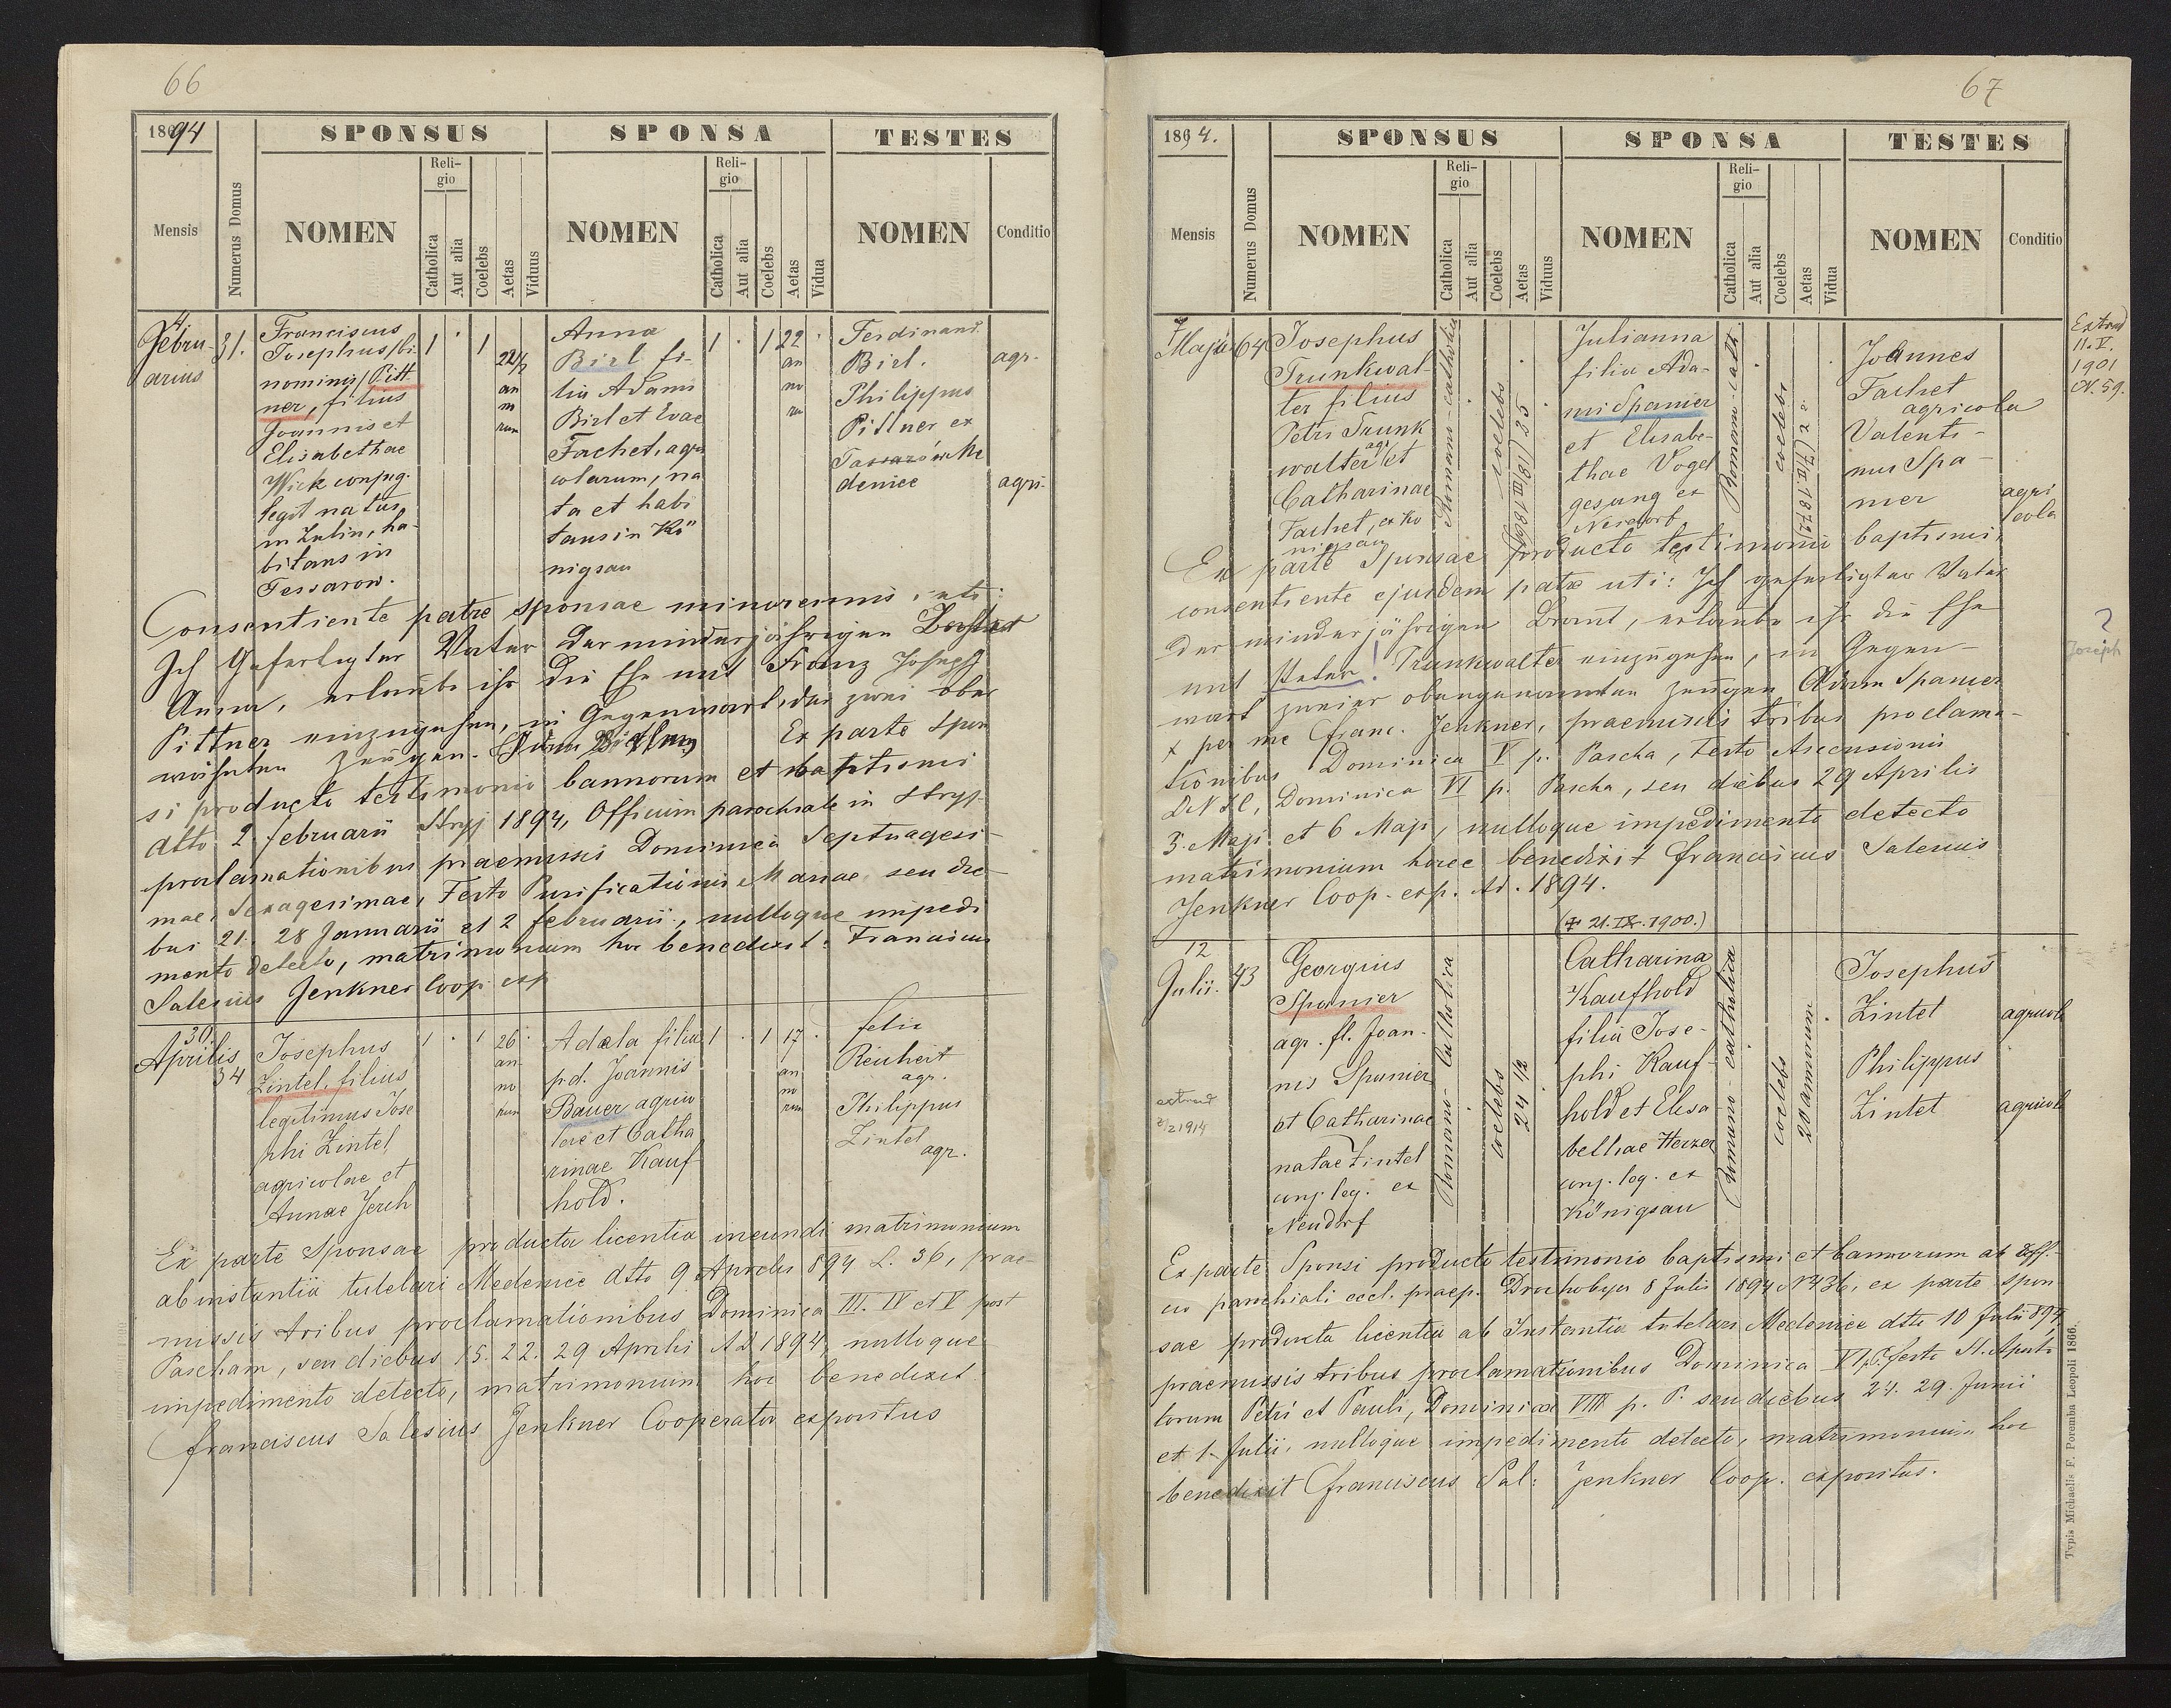 66
1894
SPONSUS
SPONSA
TESTES
Mensis
Numerus Domus
NOMEN
Religio
Catholica
Aut alia
Coelebs
Aetas
Viduus
NOMEN
Religio
Catholica
Aut alia
Coelebs
Aetas
Vidua
NOMEN
Conditio
4
Febru-
arius
31.
Franciscus
Josephus/bi
nominis/Pitt
ner, filius
Joannis et
Elisabethae
Wick conjug.
legit natus
in Zulin, ha-
bitans in
Tessarow.
1 . 1
22½
an
no
rum
Anna
Birl fi-
lia Adami
Birl et Evae
Fachet, agri
colarum, na
ta et habi
tans in Kö
nigsau
1 . 1 22 .
an
no
rum
Ferdinand
Birl.
Philippus
Pittner ex
denice
agr.
agri-
Consentiente patre sponsae minorennis, uti:
Ich Gefertigter Vater der minderjährigen
Anna, erlaube ihr die Ehe mit Franz Joseph
Pittner einzugehen, in Gegenwart der zwei ober
wähnten Zeugen. Ex parte spon
si producto testimonio bannorum et baptismi
dtto 2 februarii Stryj 1894, Officium parochiale in Stryj
proclamationibus praemissis Dominica Septuagesi-
mae, Sexagesimae, Festo Purificationis Mariae seu die-
bus 21. 28 Januarii et 2 februarii, nulloque impedi
mento detecto, matrimonium hoc benedixit: Franciscus
Salesius Jenkner Coop exp
30
Aprilis
34
Josephus
Zintel, filius
legitimus Jose
phi Zintel,
agricolae et
Annae Jerch
1 . 1 26 .
an-
no
rum
Adela filia
p.d. Joannis
Bauer agrico
lae et Catha
rinae Kauf-
hold.
1 . 1 17 .
an
no
rum
Felix
Reichert
agr.
Philippus
Zintel
agr.
Ex parte Sponsae producta licentia ineundi matrimonium
ab instantia tutelari Medenice dtto 9 Aprilis 894 L. 36, prae-
missis tribus proclamationibus Dominica III. IV et V post
Pascham, seu diebus 15. 22. 29 Aprilis Ad 1894, nulloque
impedimento detecto, matrimonium hoc benedixit
Franciscus Salesius Jenkner Cooperator expositus
67
1894.
SPONSUS
SPONSA
TESTES
Mensis
Numerus Domus
NOMEN
Religio
Catholica
Aut alia
Coelebs
Aetas
Viduus
NOMEN
Religio
Catholica
Aut alia
Coelebs
Aetas
Vidua
NOMEN
Conditio
7
Maji
64
Josephus
Trunkwal-
ter filius
Petri Trunk
walter agr et
Catharinae
Fachet, ex Kö
nigsau
Romano-catholica
coelebs
25
Julianna
filia Ada-
mi Spanier
et Elisabe-
thae Vogel
gesang ex
Neudorf
Romano-cath.
coelebs
22
Joannes
Fachet
agricola
Valenti-
nus Spa-
nier
agri
cola
Extrad
11. V.
1901
N. 59.
Ex parte Sponsae producto testimonio baptismi,
consentiente ejusdem patre uti: Ich gefertigter Vater
der minderjährigen Braut, erlaube ihr die Ehe
mit Peter ! Trunkwalter einzugehen, in Gegen-
wart zweier obengenannten Zeugen Adam Spanier
x per me Franc. Jenkner, praemissis tribus proclama-
tionibus Dominica V p. Pascha, Festo Ascensionis
DNJC, Dominica VI p. Pascha, seu diebus 29 Aprilis
3. Maji et 6 Maji, nulloque impedimento detecto
matrimonium hocce benedixit Franciscus Salesius
Jenkner Coop. exp. Ad. 1894.
?
Joseph
(† 21. IX. 1900.)
12
Julii.
43
Georgius
Spanier
agr. fl. Joan-
nis Spanier
et Catharinae
natae Zintel
conj. leg. ex
Neudorf
extrad
2/2 1914
Romano-Catholica
coelebs
24 ½
Catharina
Kaufhold
filia Jose-
phi Kauf-
hold et Elisa
bethae Herzer
conj. leg. ex
Königsau
Romano-catholica
coelebs
20 annorum
Josephus
Zintel
agricola
Philippus
Zintel
agricola
Ex parte Sponsi producto testimonio baptismi et bannorum ab Offi-
cio parochiali eccl. praep. Drohobycz 8 Julii 1894 N 436, ex parte spon
sae producta licentia ab Instantia tutelari Medenice dtto 10 Julii 894
praemissis tribus proclamationibus Dominica VI p. P. festo St. Aposto
lorum Petri et Pauli, Dominica VIII p. P. seu diebus 24. 29. Junii
et 1 Julii, nulloque impedimento detecto, matrimonium hoc
benedixit Franciscus Sal: Jenkner Coop. expositus.
Typis Michaelis F. Poremba Leopoli 1866.